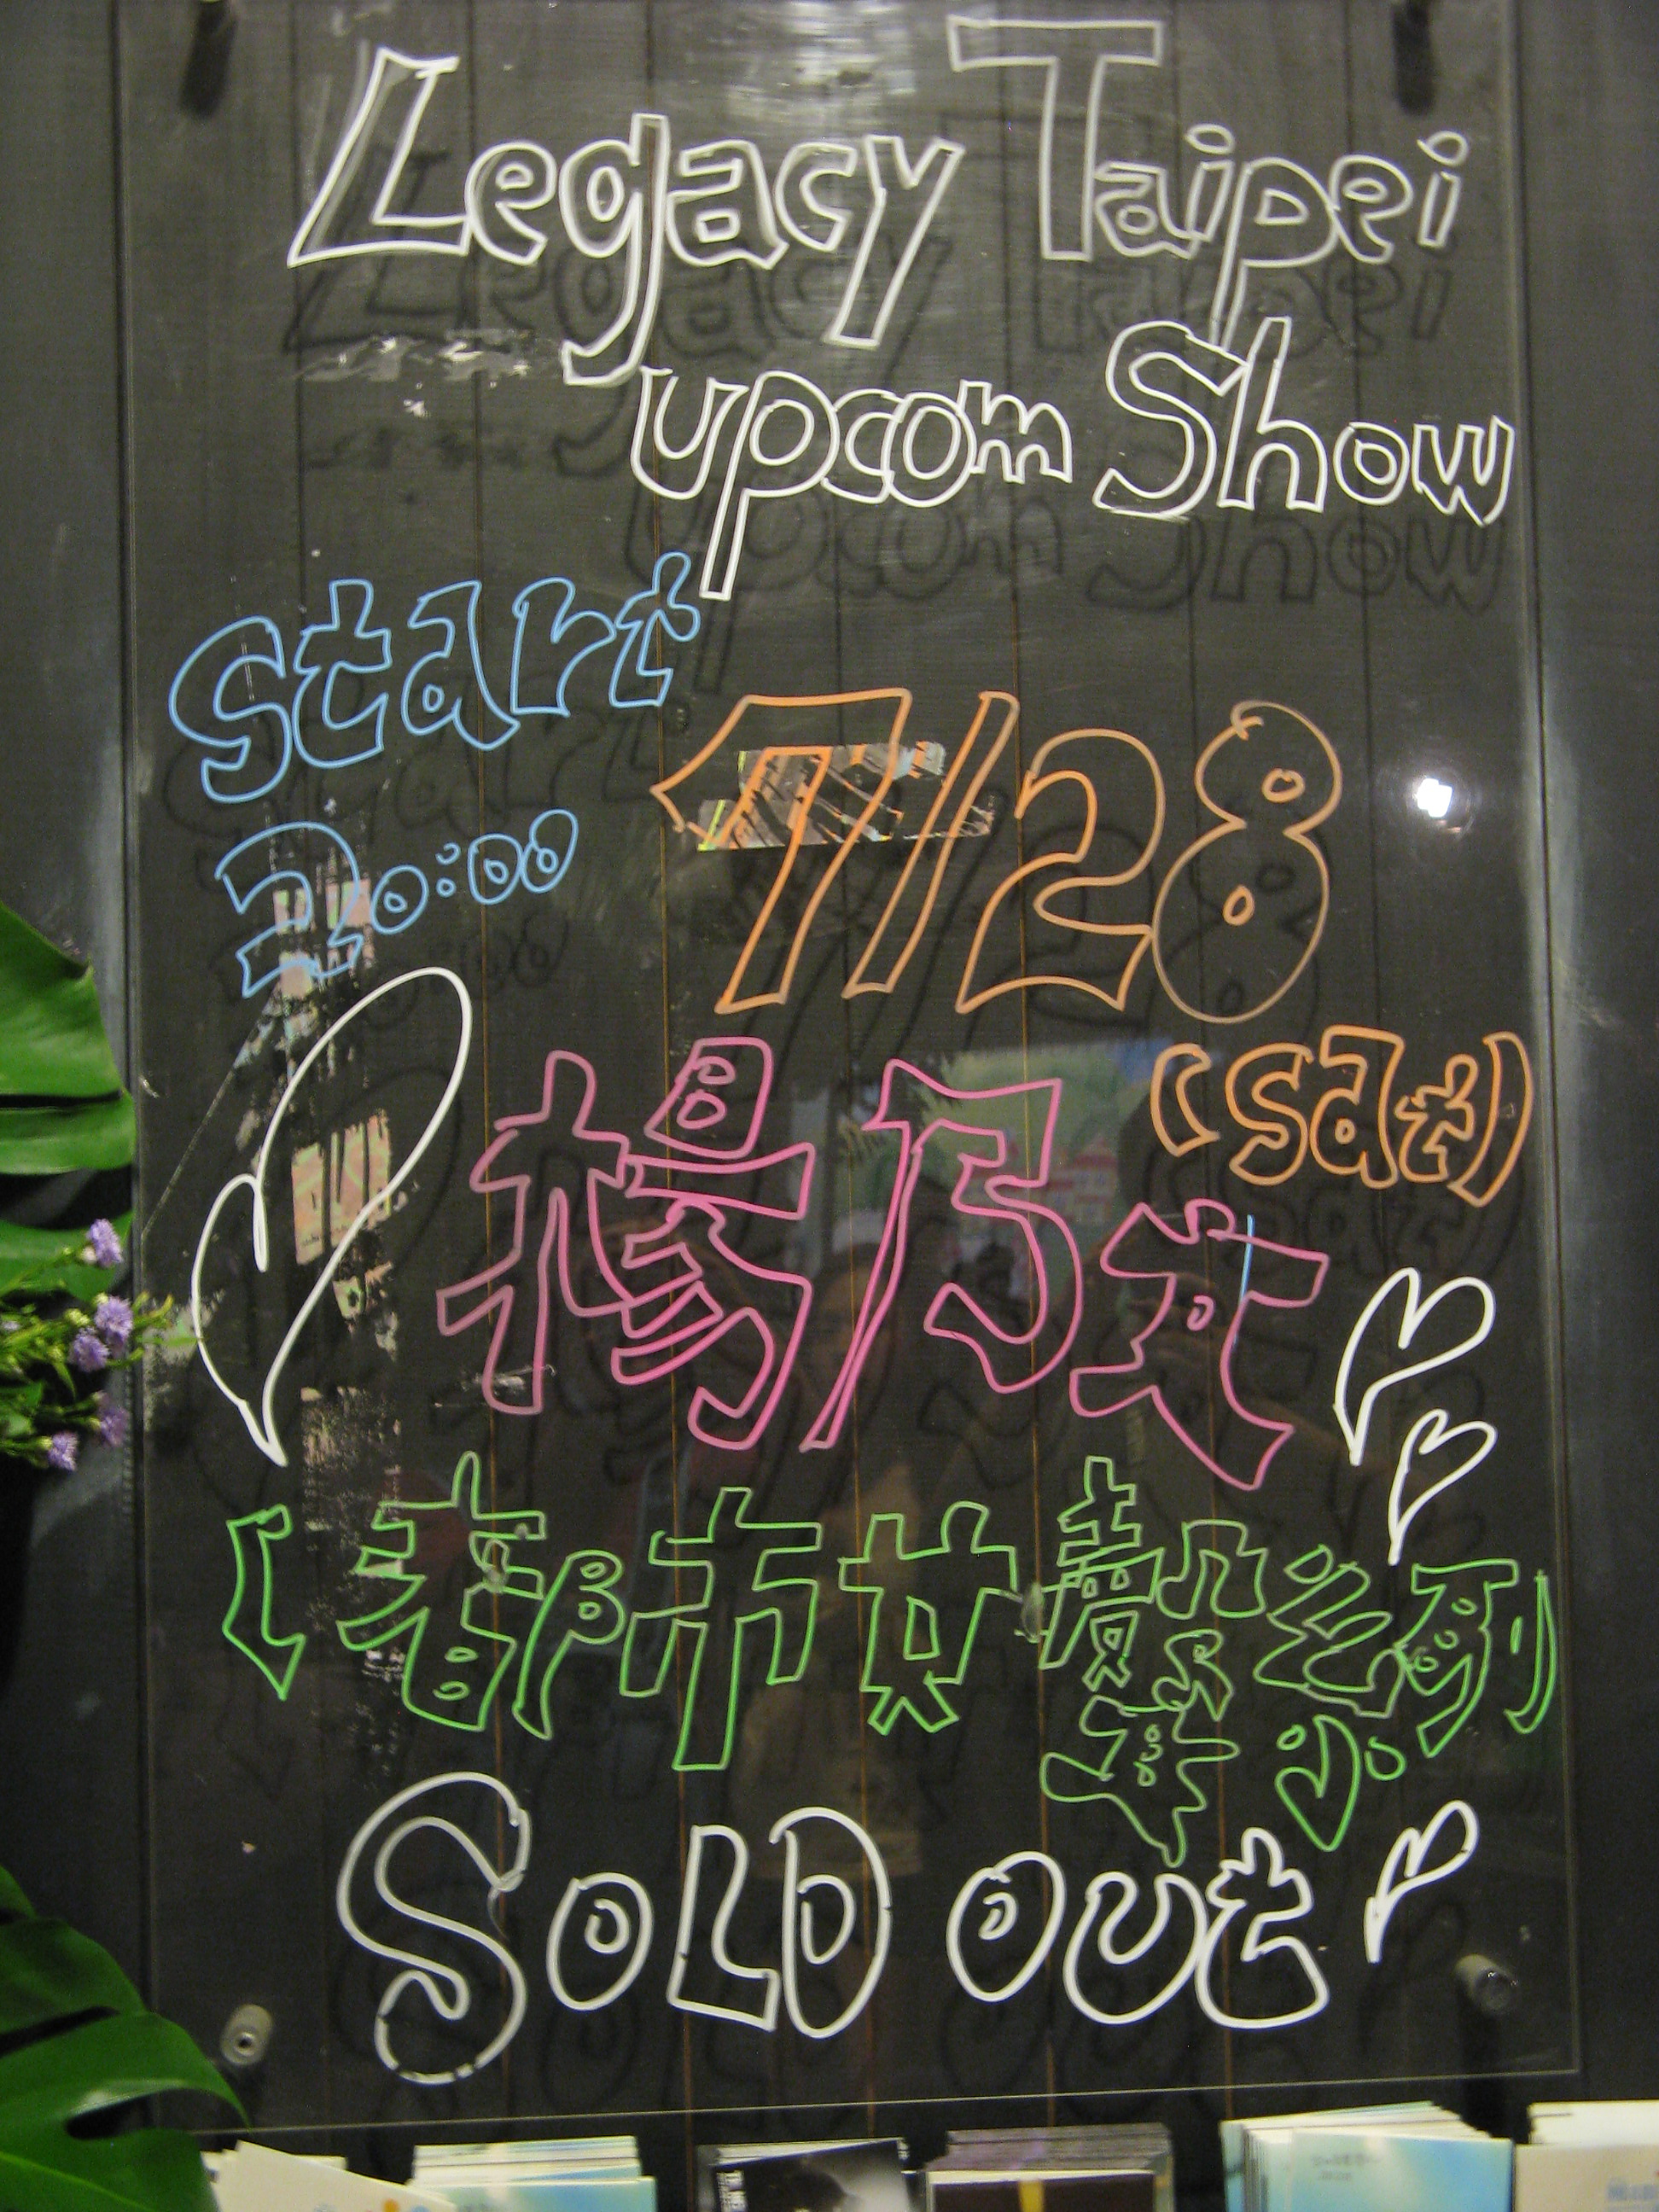 Legacy Taipei
upcom Show
Start
20:00
7/28
(sat)
楊乃文
(都市女聲系列
小
SOLD OUT